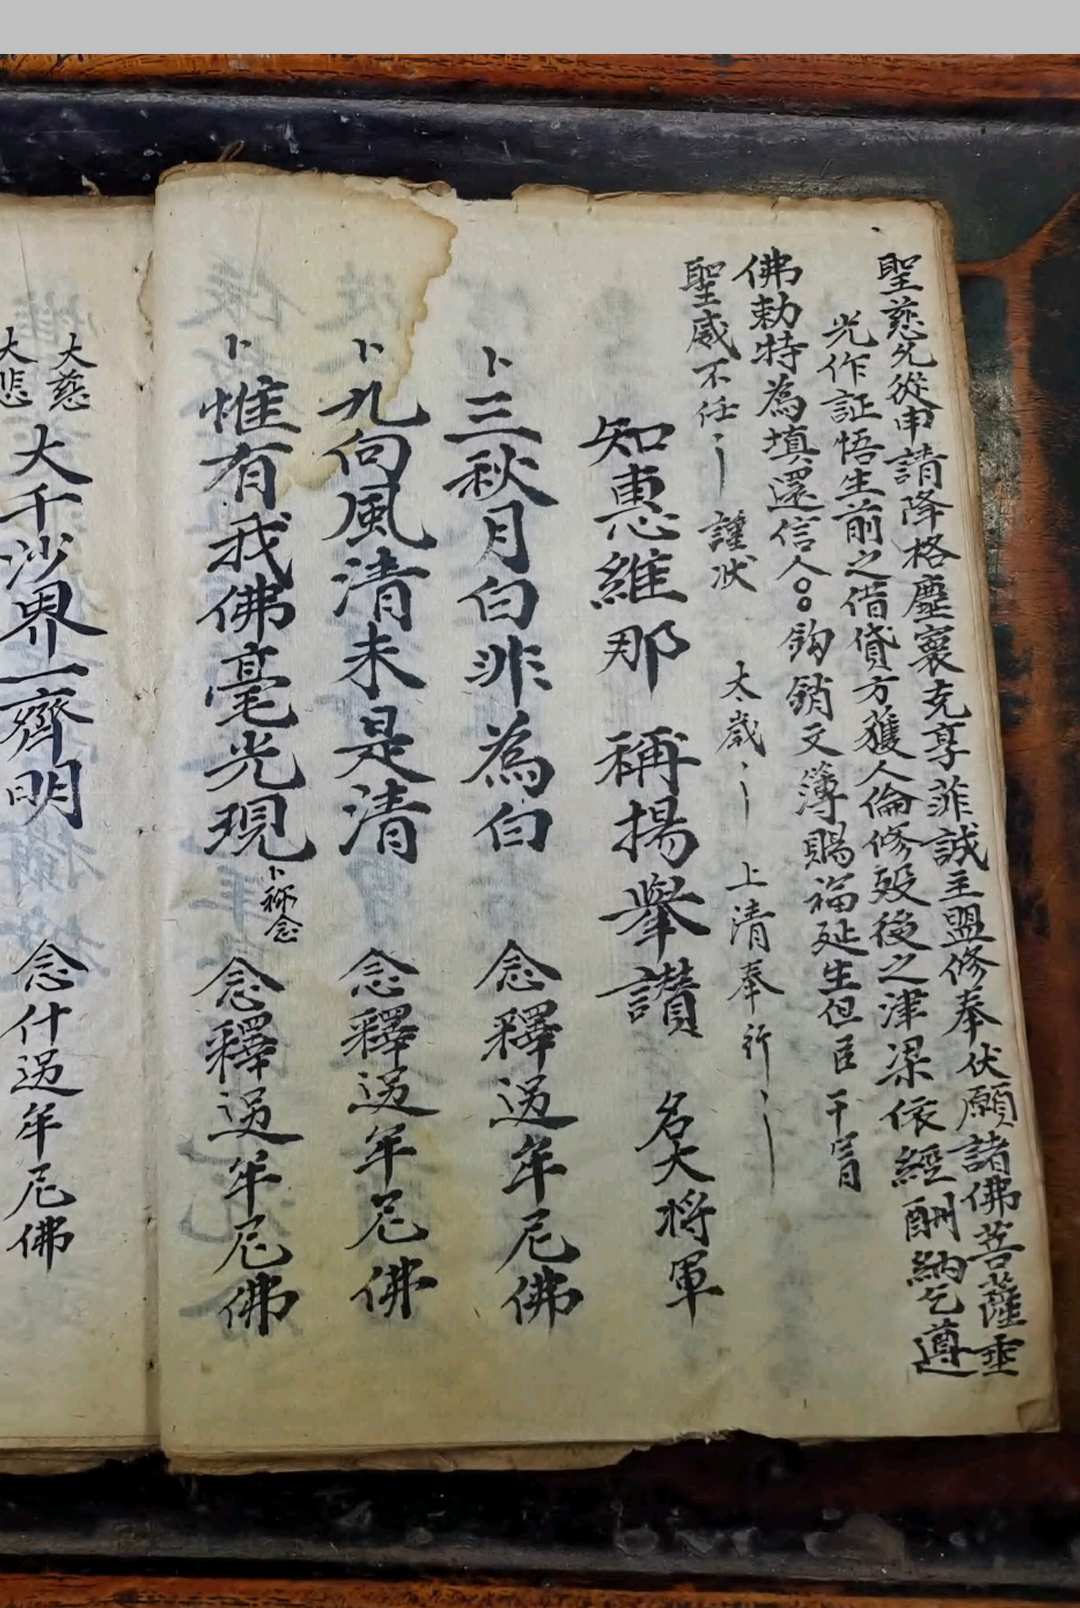 聖慈允從申請降格塵寰克享菲誠主盟修奉伏願諸佛菩薩垂
光作証悟生前之借貸方獲人倫修殁後之津梁依經酬納乞遵
佛勅特為填還信人〇〇鈎銷文簿賜福延生但臣干冒
聖威不任〻 謹状 太歲〻 上清奉行〻
知惠維那 稱揚舉讃 名大將軍
卜三秋月白非為白 念釋迦年尼佛
卜九向風清未是清 念釋迦年尼佛
卜惟有我佛毫光現 卜称念 念釋迦年尼佛
大慈
大悲
大千沙界一齊明 念什迦年尼佛